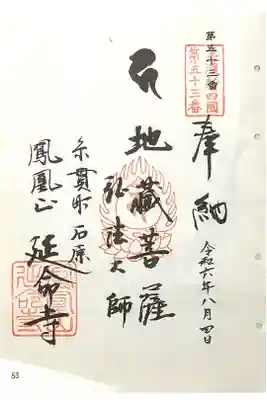 第五十三番
四國
第五十三番
奉納
令和六年八月四日
地蔵菩薩
弘法大師
糸貫町石原
鳳凰山
延命寺
53